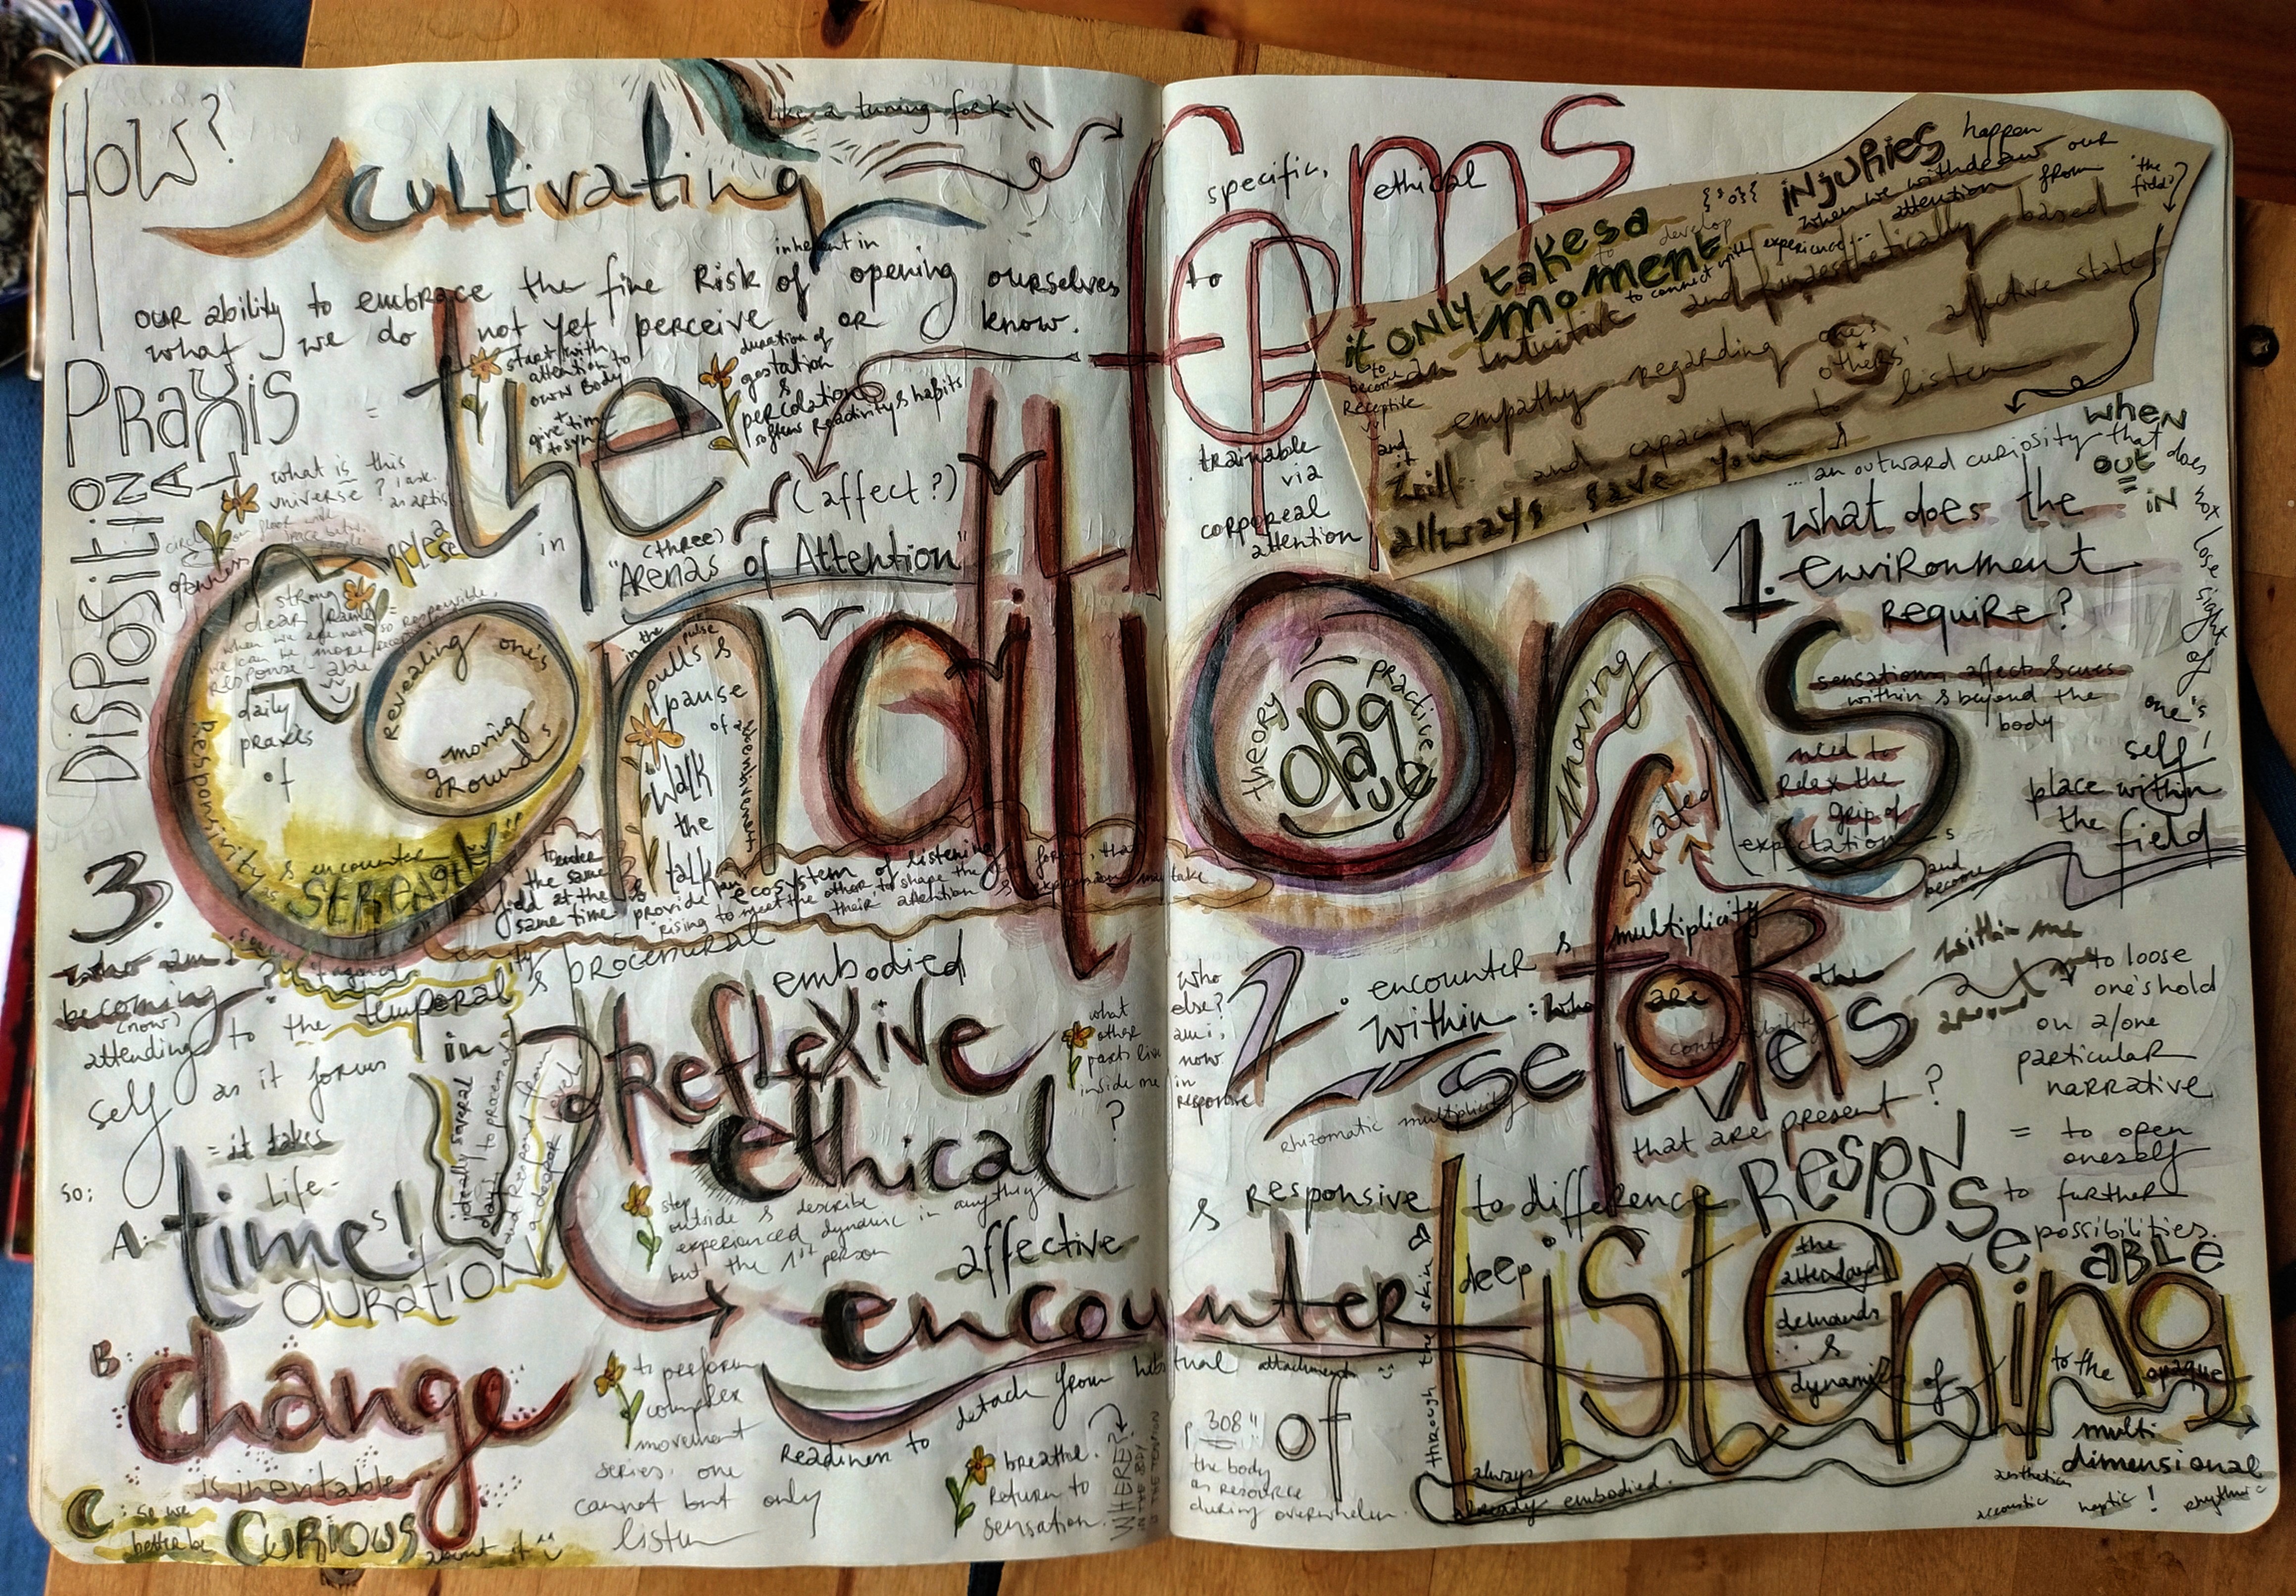 HOW?
PRAXIS
DISPOSITIONAL
cultivating
like a tuning fork
our ability to embrace the fine Risk of opening ourselves
inherent in
what we do not yet perceive or know.
the
start with
attention to
own Body
give time
to sync
duration of
gestation
&
percolation
softens Reactivity & habits
(affect?)
what is this
universe? I ask.
as artist
release
openness
in
(three)
"ARENAS of Attention"
Conditions
strong
dear frame =
when we are not so responsible,
we can be more receptive
Response-able
daily
praxes
of
Revealing one's
moving
grounds
Responsivity as
& encounter
STREAM
in the pulse
pulls &
pause
of a
walk
the
talk
tender
the same
field at the
same time
& provide an ecosystem of listening
rising to meet the other to shape the form, that
their attention & expression may take
3.
who am I
becoming?
(now)
attending to the temporal
ity & procedural
self as it forms
in
= it takes
Life-
so:
A: time's!
DURATION
ideally several
days! to process
and Respond from
a deeper level
B: change
is inevitable
C: so we
better be
curious
about it
embodied
Reflexive
ethical
what
other
parts live
inside me
?
step
outside & describe
experienced dynamic in anything
but the 1st person
affective
encounter
to perform
complex
movement
series. one
cannot but only
listen
Readiness to detach from habitual attachment
breathe.
return to
sensation.
WHERE?
IN THE BODY
IS THE TENSION
specific,
ethical
to
forms
trainable
via
corporeal
attention
it ONLY takes a
moment
{so}
to develop
to connect with experience...
INJURIES happen
when we withdraw our
attention from
'the
field?'
to
become
Receptive
an Intuitive and kinaesthetically based
empathy regarding one's + others' affective states
and capacity to listen
and
it
will
always save you
when
out
=
in
...an outward curiosity that does not lose sight of
one's
self!
1. what does the
environment
require?
sensations, affects & cues
within & beyond the
body
need to
Relax the
grip of
expectations
and
become
place within
the field
theory
practice
opaque
moving
situated
for
2. encounter & multiplicity
within: who are the
within me
around
who
else?
am i,
now
in
response
selves
rhizomatic multiplicity
OTHERS
that are present?
to loose
one's hold
on a/one
particular
narrative
= to open
oneself
to further
possibilities.
& responsive to difference
RESPONSE ABLE
deep
Listening
through the skin
the
attendant
demands
&
dynamics of
to the opaque
p. 308"
the body
as resource
during overwhelm.
of
always
already embodied.
multi
dimensional
aesthetics
acoustic
haptic!
rhythmic